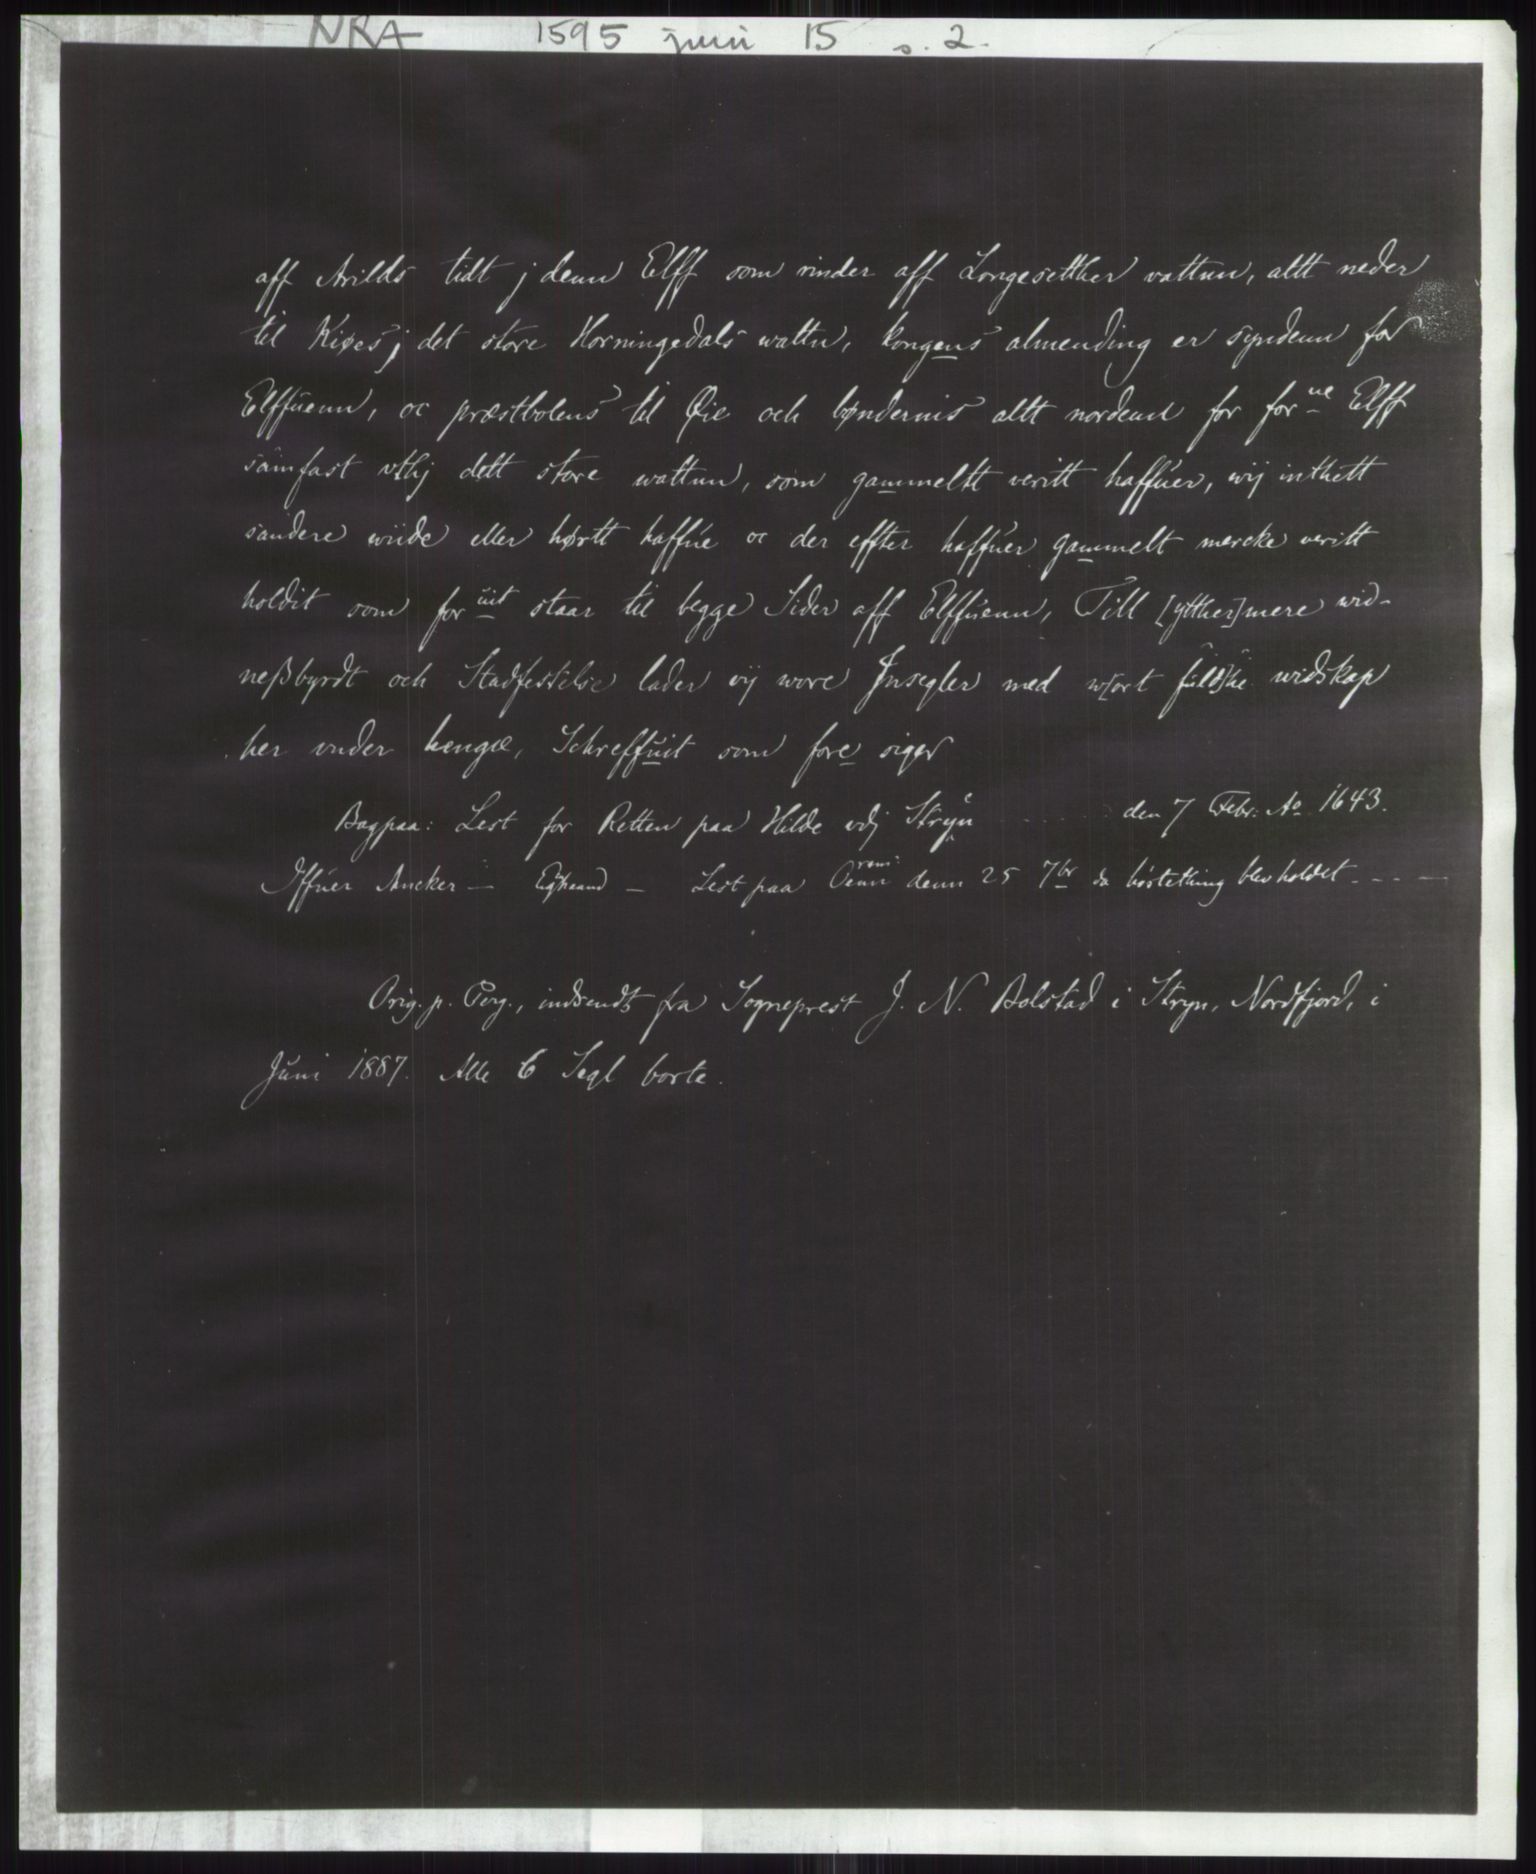 NRA 1595 juni 15 s. 2.
aff Arilds tidt j denn Elff som rinder aff Langesetther vattnn, altt neder
til Kiøs j det store Horningedals wattn, kongens almending er syndenn for
Elffuenn, oc præstbolens til Øie och bøndernis altt nordenn for forne Elff
samfast vthj dett store wattnn, som gammeltt veritt haffuer, wij inthett
sandere wiide eller hørtt haffue oc der effter haffuer gammelt mercke veritt
holdit som foruit staar til begge Sider aff Elffuenn, Till [ytther]mere wid-
neßbyrdt och Stadfestelse lader vij wore Jnsegler med wort widskap
her vnder henge, Schreffuit som fore siger
Bagpaa: Lest for Retten paa Hilde vdj Stryn ...... den 7 Febr. Ao 1643.
Iffuer Ancker — Eghaand — Lest paa denn 25 7br da høstething blev holdet ----
Orig. p. Perg., indsendt fra Sogneprest J. N. Bolstad i Stryn, Nordfjord, i
Juni 1887. Alle 6 Segl borte.